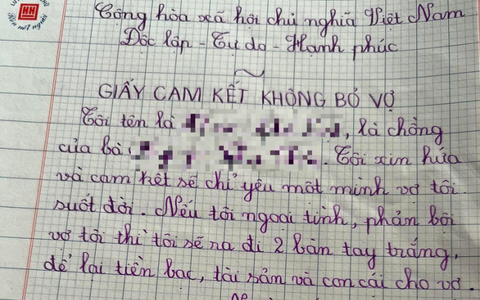 HH
Cộng hòa xã hội chủ nghĩa Việt Nam
Độc lập - Tự do - Hạnh phúc
GIẤY CAM KẾT KHÔNG BỎ VỢ
Tôi tên là , là chồng
của bà . Tôi xin hứa
và cam kết sẽ chỉ yêu một mình vợ tôi
suốt đời. Nếu tôi ngoại tình, phản bội
vợ tôi thì tôi sẽ ra đi 2 bàn tay trắng,
để lại tiền bạc, tài sản và con cái cho vợ.